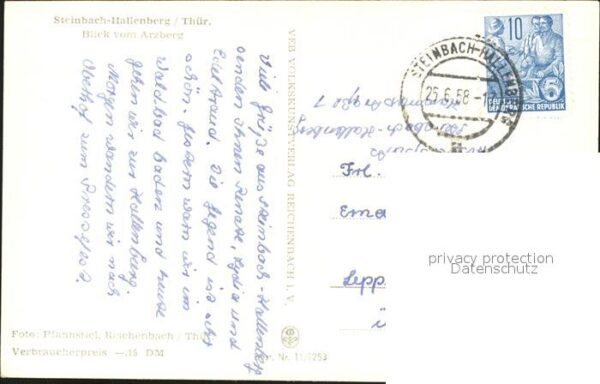 Steinbach-Hallenberg / Thür.
Blick vom Arzberg
Viele Grüße aus Steinbach-Hallenberg
senden Ihnen Renate, Lydia und
Edeltraud. Die Gegend ist sehr
schön. Gestern warn wir im
Waldbad baden und heute
gehen wir zur Hallenburg.
Morgen wandern wir nach
Oberhof zum Pressefest.
Foto: Pfannstiel, Reichenbach / Thür.
Verbraucherpreis —.15 DM
VEB VOLKSKUNSTVERLAG REICHENBACH I. V.
Nr. 11/1253
STEINBACH-HALLENBERG
25.6.58
10
DEUTSCHE
DEMOKRATISCHE REPUBLIK
5
Steinbach-Hallenberg
Frl.
Erna
Lepp
privacy protection
Datenschutz